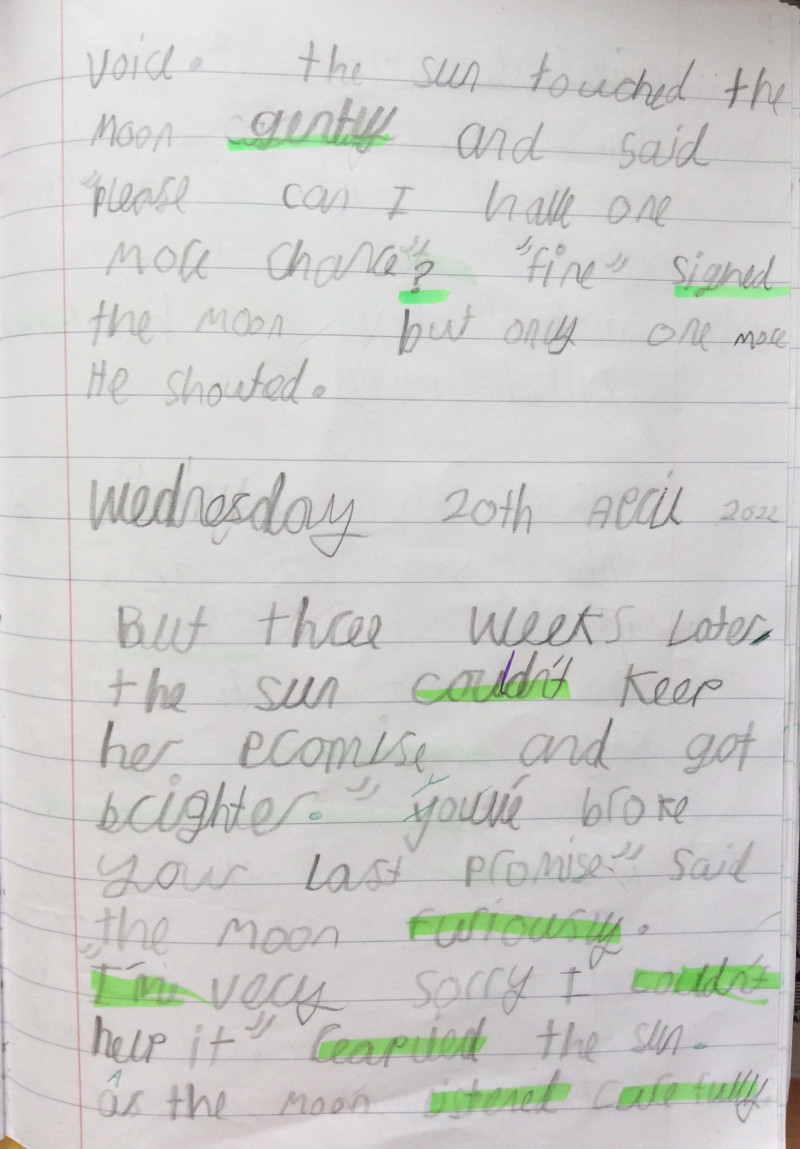 void. the sun touched the
moon gently and said
"please can I have one
more chance"? "fine" signed
the moon but only one more
He shouted.
Wednesday 20th April 2022
But three weeks later,
the sun couldn't keep
her promise and got
brighter. "you've broke
your last promise" said
the moon furiously.
"I'm very sorry I couldn't
help it" the sun.
As the moon listened carefully